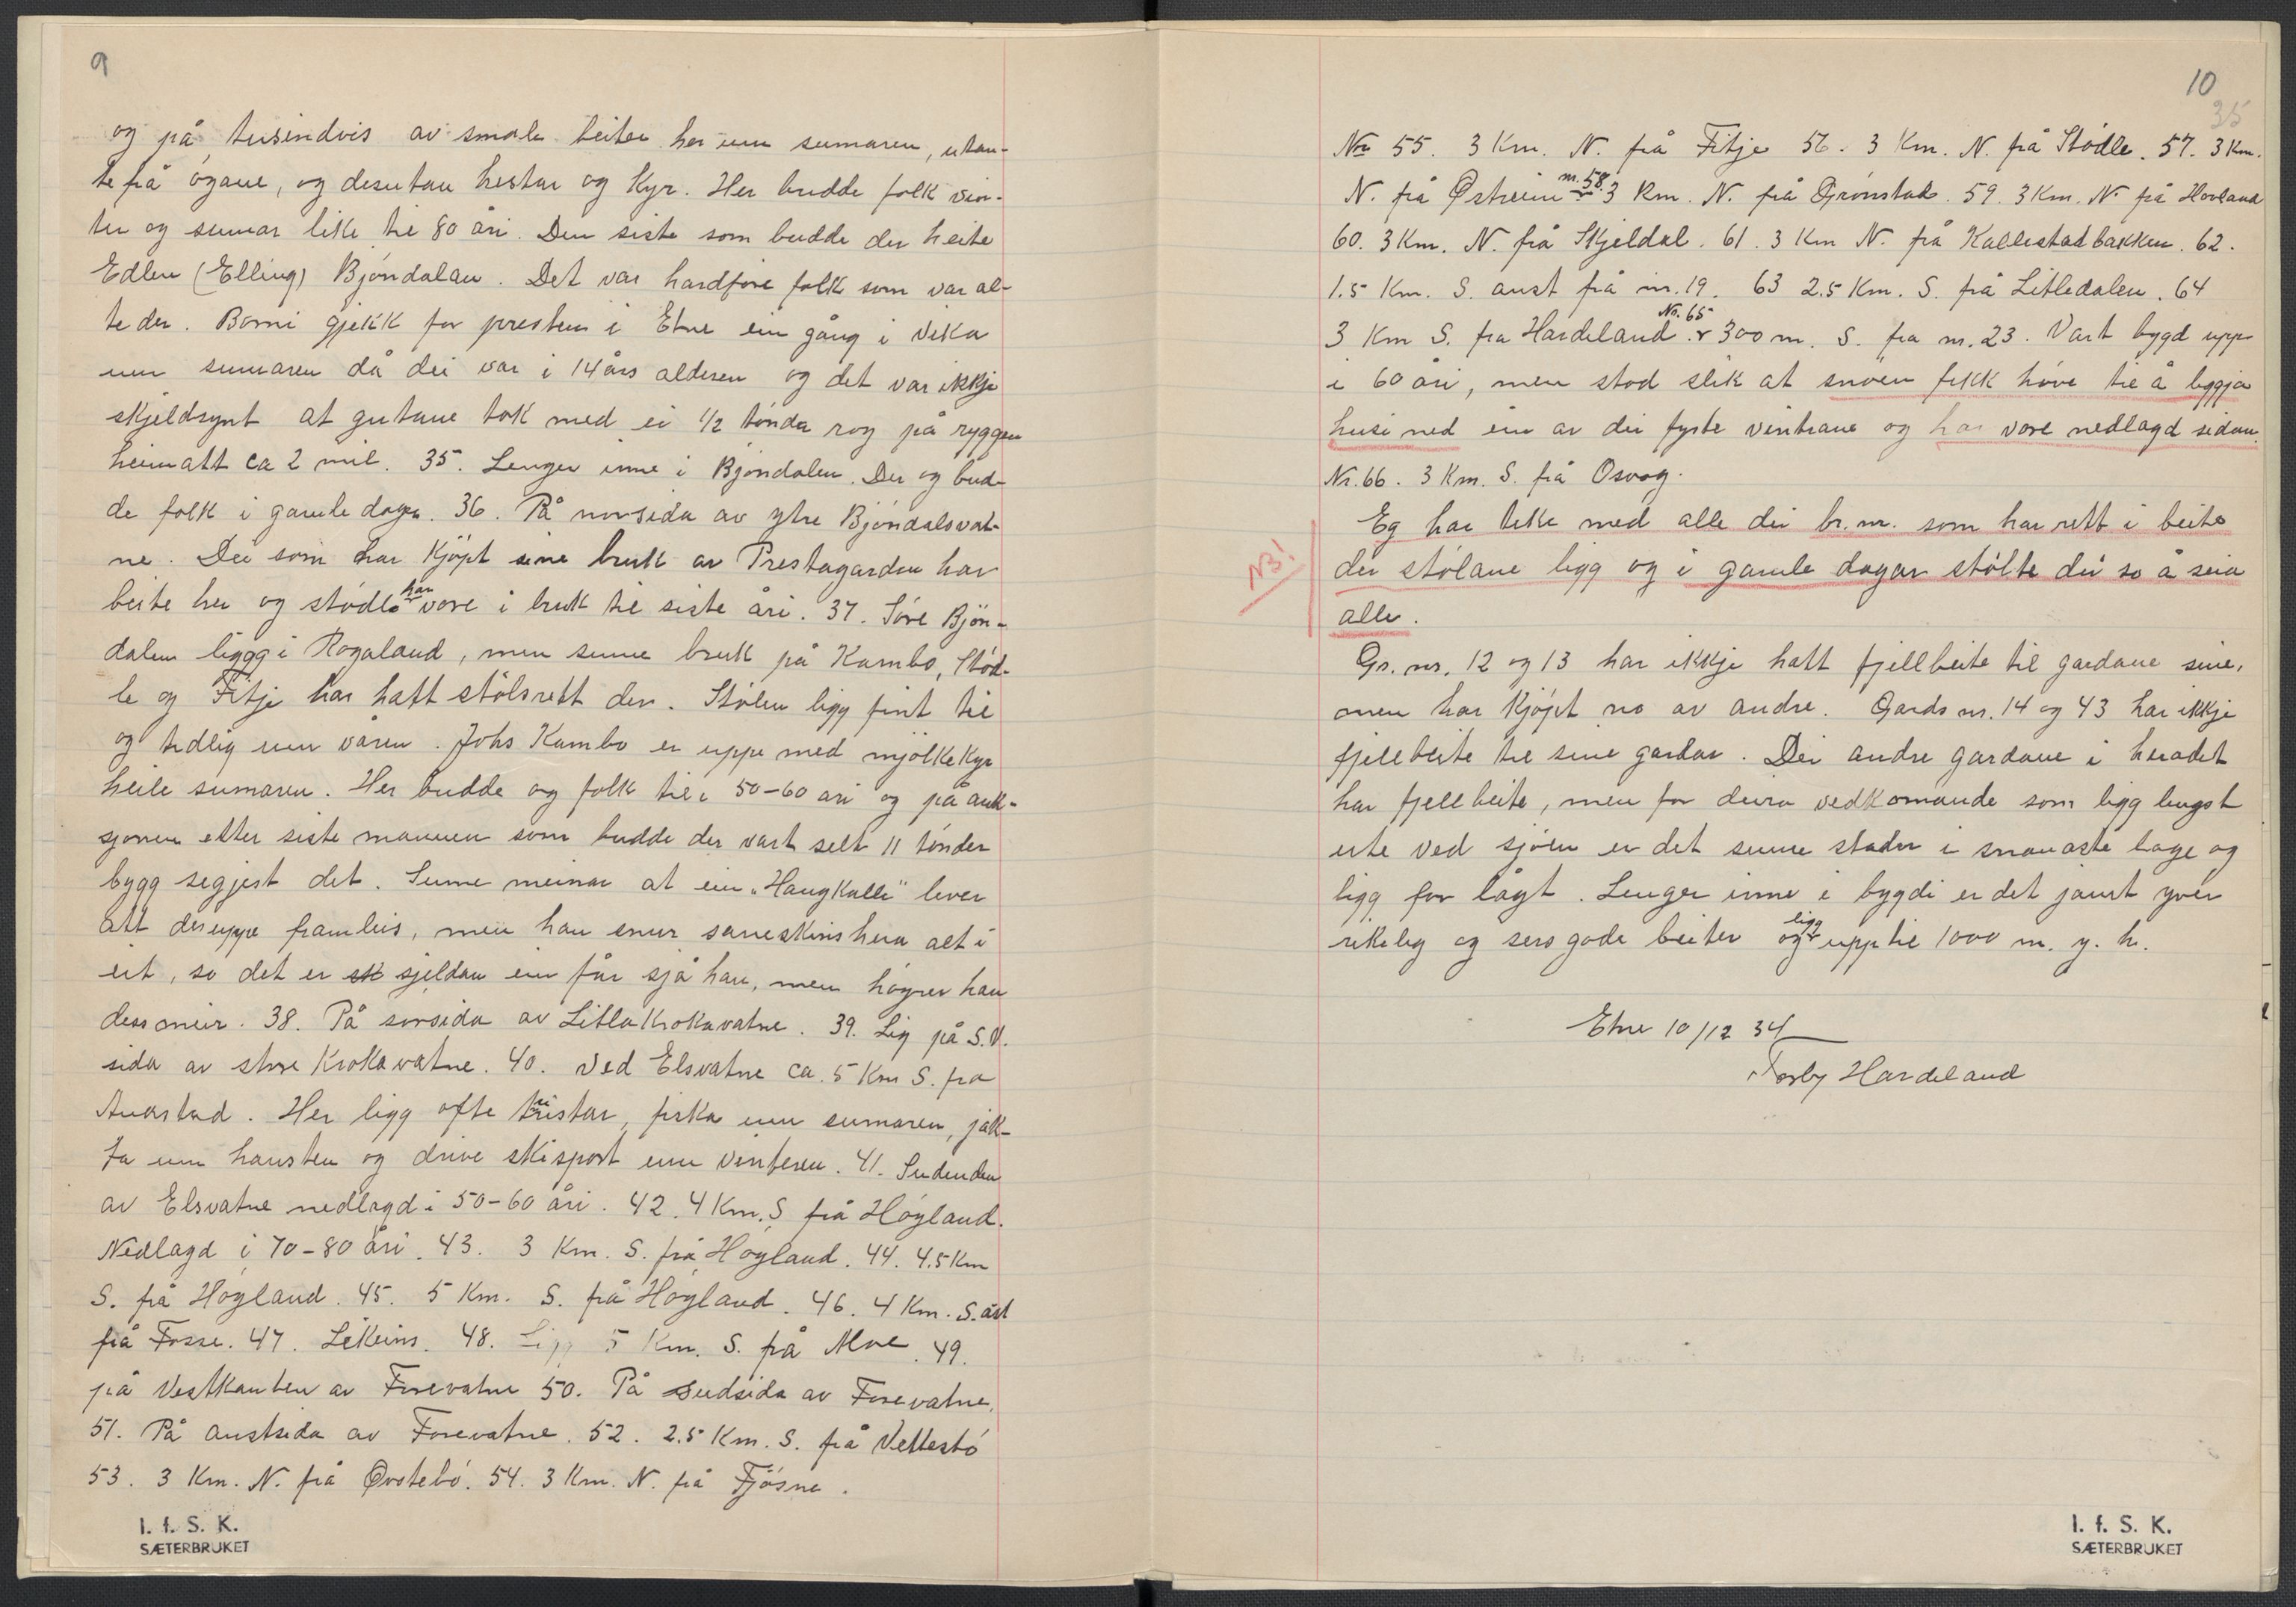 9
og på tusindvis av smale beiter her um sumaren, utan-
te frå øgane, og desutan hestar og Kyr. Her budde folk vin-
ter og sumar like til 80 åri. Den siste som budde der heite
Edlen (Elling) Bjöndalen. Det var hardföre folk som var al-
te der. Borni gjekk for presten i Etne ein gång i vika
um sumaren då dei var i 14 års alderen og det var ikkje
skjeldsynt at gutane tok med ei 1/2 tönda rog på ryggen
heimatt ca 2 mil. 35. Lenger inne i Bjöndalen. Der og bud-
de folk i gamle dagar. 36. På norsida av ytre Bjöndalsvat-
ne. Dei som har Kjöpt sine bruk av Prestagarden har
beite her og stödle har vore i bruk til siste åri. 37. Söre Bjön-
dalen liggg i Rogaland, men sume bruk på Kambo, Stöd-
le og Fitje har hatt stölsrett der. Stölen ligg fint til
og tidlig um våren. Johs Kambo er uppe med mjölkekyr
heile sumaren. Her budde og folk til i 50-60 åri og på auk-
sjonen etter siste mannen som budde der vart selt 11 tönder
bygg segjest det. Sume meinar at ein "HaugKalle" lever
att deruppe framleis, men han snur
eit, so det er sjeldan ein får sjå han, men höyrer han
dess meir. 38. På sorsida av LitlaKrokavatne. 39. Lig på S.V.
sida av store Krokavatne. 40. Ved Elsvatne ca. 5 Km S. fra
Austad. Her ligg ofte turistar, fiska um sumaren, jak-
ta um hausten og drive skisport um vinteren. 41. Sudenden
av Elsvatne nedlagd i 50-60 åri. 42. 4 Km. S frå Höyland.
Nedlagd i 70-80 åri. 43. 3 Km. S. frå Höyland. 44. 4.5 Km
S. frå Höyland. 45. 5 Km. S. frå Höyland. 46. 4 Km. S. aust
frå Fosse. 47. Likeins. 48. Ligg 5 Km. S. frå Moe. 49.
på Vestkanten av Forevatne 50. På sudsida av Forevatne.
51. På austsida av Forevatne. 52. 2.5 Km. S. frå Vettestö
53. 3 Km. N. frå Örstebö. 54. 3 Km. N. frå Fjösne.
I. f. S. K.
SÆTERBRUKET
10
35
Nr 55. 3 Km. N. frå Fitje 56. 3 Km. N. frå Stödle. 57. 3 Km.
N. frå Østreim nr. 58. 3 Km. N. frå Grönstad. 59. 3 Km. N. på Hovland
60. 3 Km. N. frå Skjeldal. 61. 3 Km N. frå Kallestadbakken. 62.
1.5 Km. S. aust frå nr. 19. 63 2.5 Km. S. frå Litledalen. 64
3 Km S. fra Hardeland. Nr. 65 300 m. S. fra nr. 23. Vart bygd upp
i 60 åri, men stod slik at snöen fekk höve til å leggja
husi ned ein av dei fyste vintrane og har vore nedlagd sidan.
Nr. 66. 3 Km. S. frå Osvag.
NB!
Eg har teke med alle dei br. nr. som har rett i beite
der stölane ligg og i gamle dagar stölte dei so å seia
alle.
Gr. nr. 12 og 13 har ikkje hatt fjellbeite til gardane sine,
men har Kjöpt no av andre. Gards nr. 14 og 43 har ikkje
fjellbeite til sine gardar. Dei andre gardane i heradet
har fjellbeite, men for deira vedkomande som ligg lengst
ute ved sjöen er det sume stader i snauaste lage og
ligg for lågt. Lenger inne i bygdi er det jamt yver
rikeleg og sers gode beiter og ligg upp til 1000 m. y. h.
Etne 10/12 34
Torby Hardeland
I. f. S. K.
SÆTERBRUKET